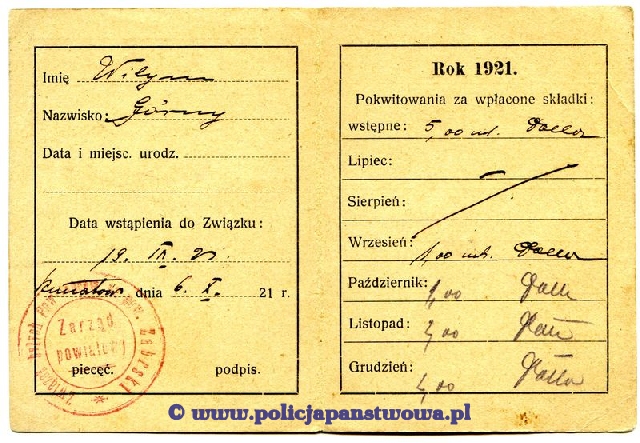 Imię Wilym
Nazwisko: Górny
Data i miejsc. urodz.
Data wstąpienia do Związku:
19. IX. 21
dnia 6. X. 21 r.
Zarząd
powiatowy
Zabrski
pieczęć. podpis.
Rok 1921.
Pokwitowania za wpłacone składki:
wstępne: 5,00 mk.
Lipiec:
Sierpień:
Wrzesień: 1,00 mk.
Październik: 1,00
Listopad:
Grudzień:
© www.policjapanstwowa.pl